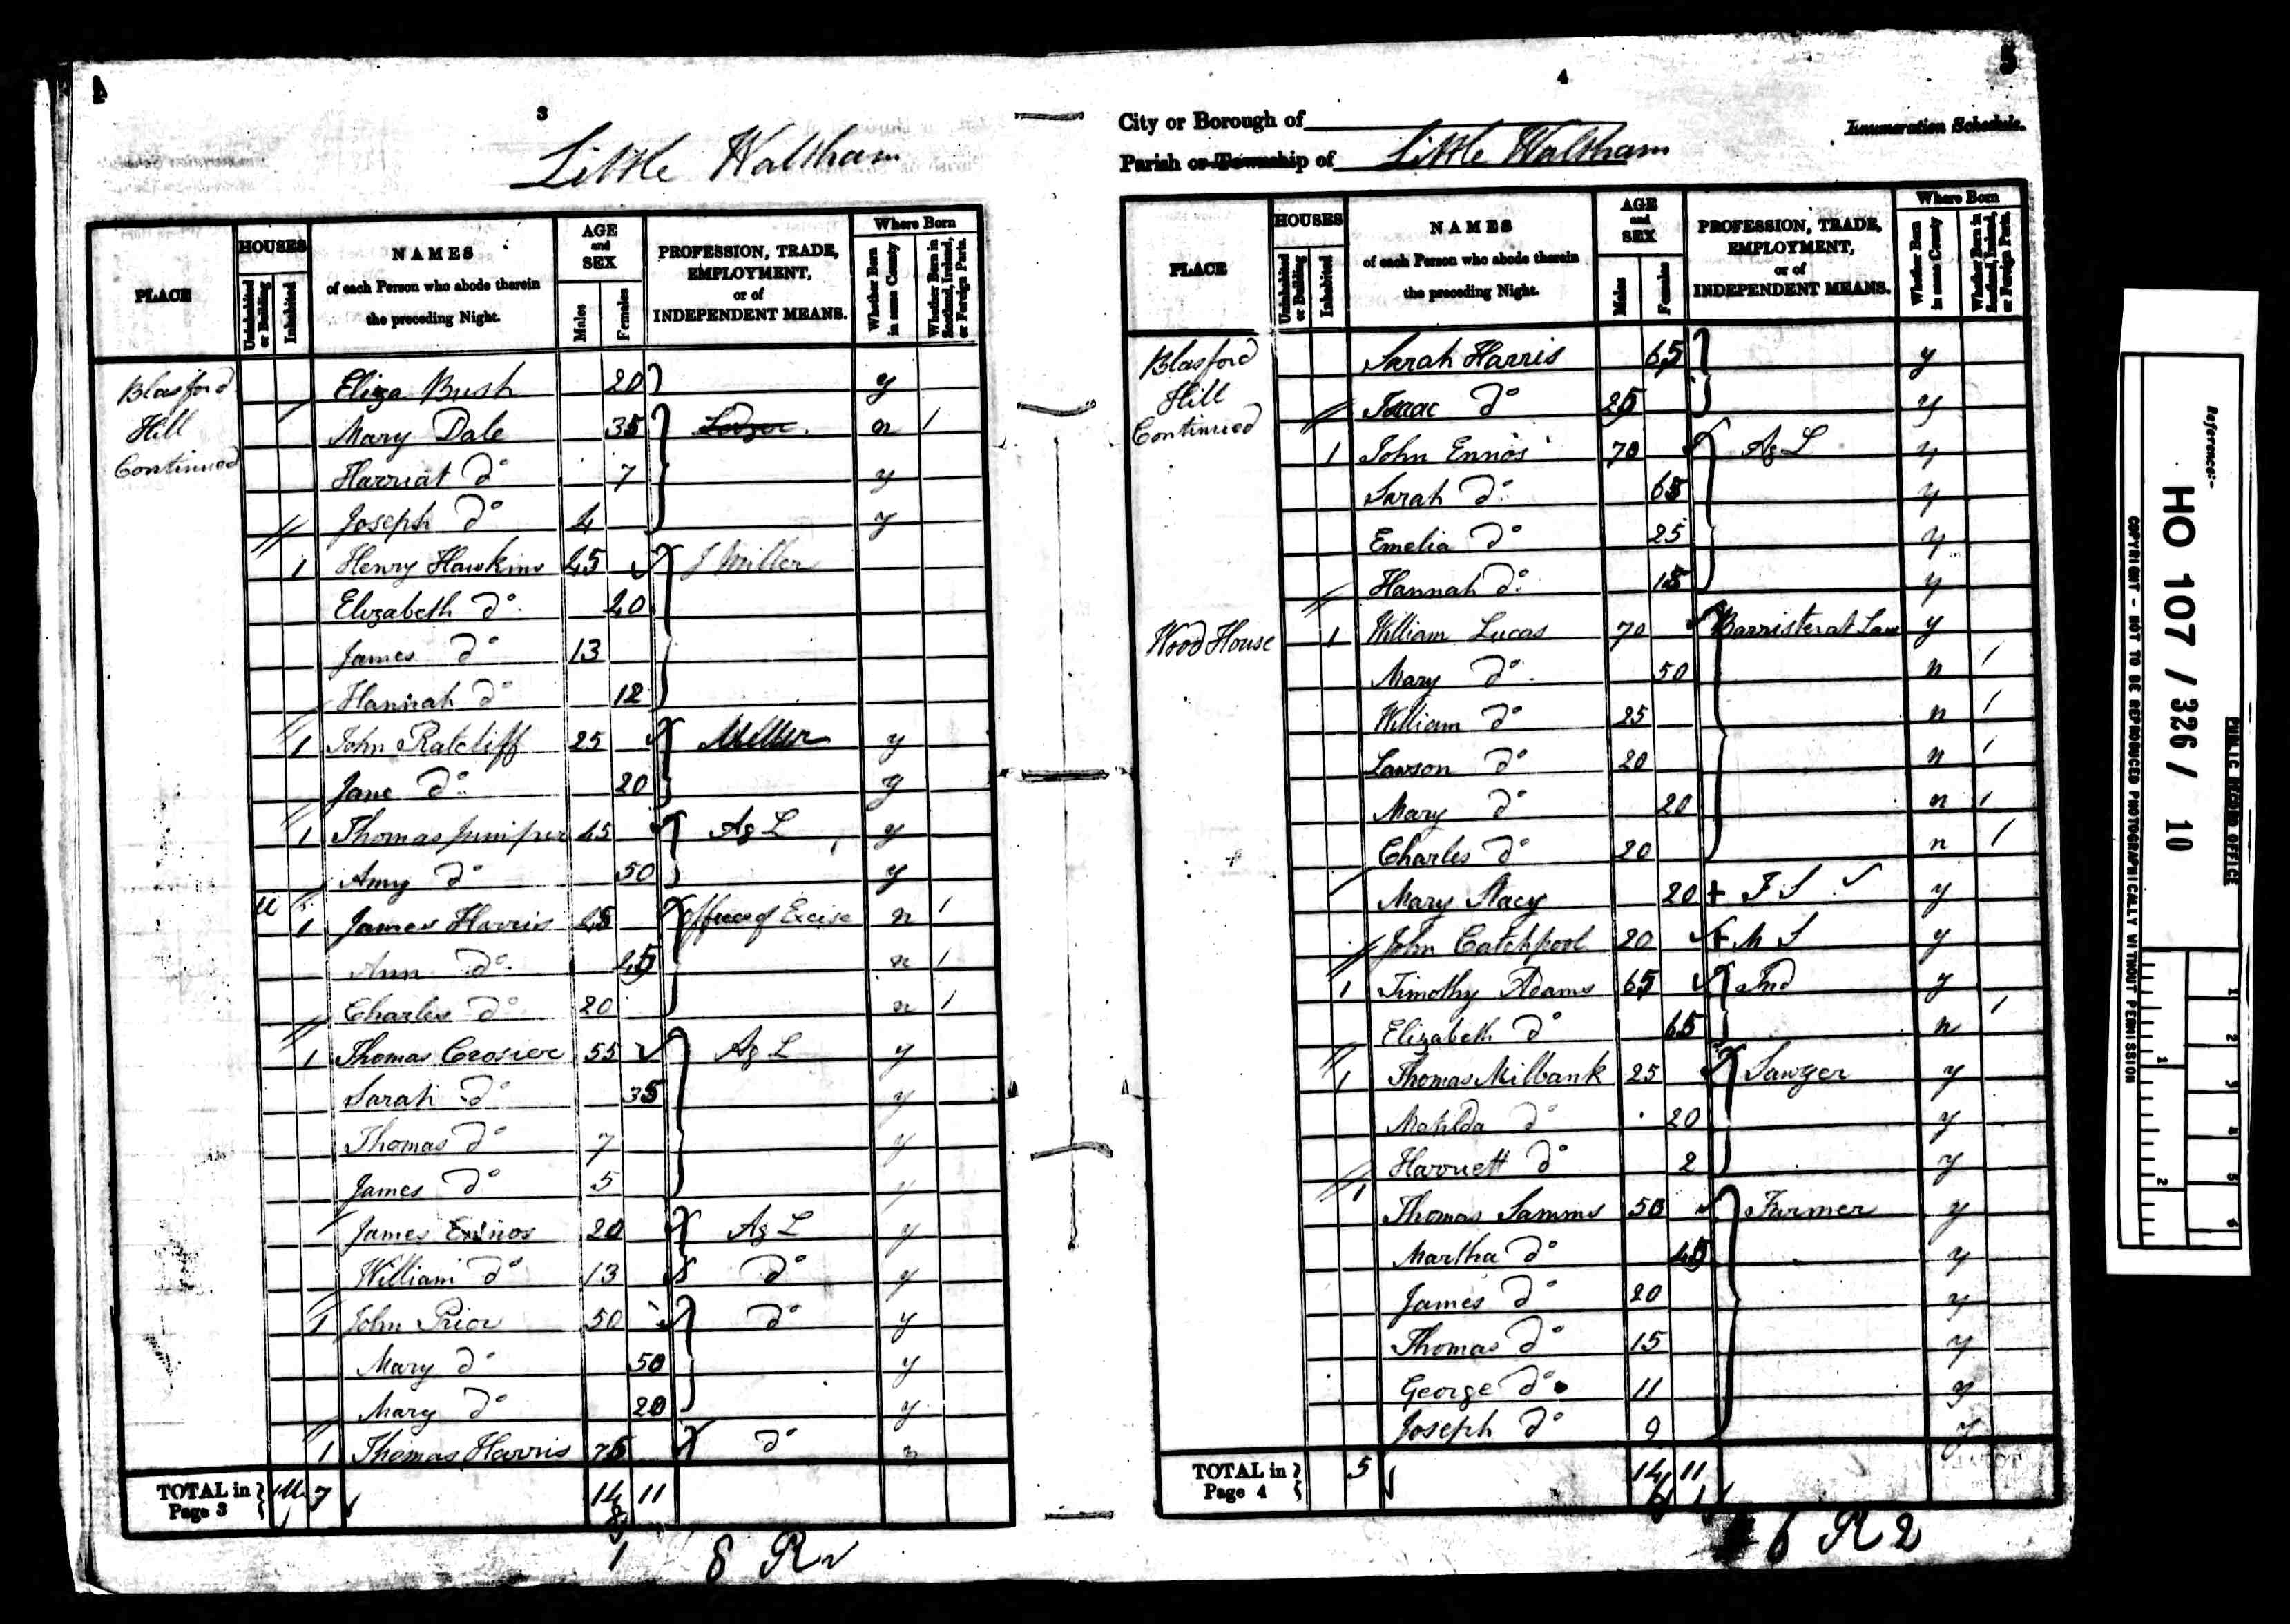 4
3
Little Waltham
PLACE HOUSES NAMES of each Person who abode therein the preceding Night. AGE and SEX PROFESSION, TRADE, EMPLOYMENT, or of INDEPENDENT MEANS. Where Born
Uninhabited or Building Inhabited Males Females Whether Born in same County Whether Born in Scotland, Ireland, or Foreign Parts.
Blasford Eliza Bush 20 y
Hill Mary Dale 35 n 1
Continued Harriat do 7 y
Joseph do 4 y
1 Henry Hawkins 45 J Miller
Elizabeth do 40
James do 13
Hannah do 12
1 John Ratcliff 25 Miller y
Jane do 20 y
1 Thomas Juniper 45 Ag L y
Amy do 50 y
u 1 James Harris 45 Officer of Excise n 1
Ann do 45 n 1
Charles do 20 n 1
1 Thomas Crosier 55 Ag L y
Sarah do 35 y
Thomas do 7 y
James do 5 y
James Ennos 20 Ag L y
William do 13 do y
1 John Prior 50 do y
Mary do 50 y
Mary do 20 y
1 Thomas Harris 75 do
TOTAL in Page 3 1u 7 14 11
8 R
4
5
City or Borough of
Enumeration Schedule.
Parish or Township of Little Waltham
PLACE HOUSES NAMES of each Person who abode therein the preceding Night. AGE and SEX PROFESSION, TRADE, EMPLOYMENT, or of INDEPENDENT MEANS. Where Born
Uninhabited or Building Inhabited Males Females Whether Born in same County Whether Born in Scotland, Ireland, or Foreign Parts.
Blasford Sarah Harris 65 y
Hill Isaac do 25 y
Continued 1 John Ennos 70 Ag L y
Sarah do 65 y
Emelia do 25 y
Hannah do 15 y
Wood House 1 William Lucas 70 Barrister at Law y
Mary do 50 n 1
William do 25 n 1
Lawson do 20 n 1
Mary do 20 n 1
Charles do 20 n 1
Mary Stacy 20 + F S y
John Catchpool 20 + M S y
1 Timothy Adams 65 Ind y
Elizabeth do 65 n 1
1 Thomas Milbank 25 Sawyer y
Matilda do 20 y
Harruett do 2 y
1 Thomas Samms 50 Farmer y
Martha do 45 y
James do 20 y
Thomas do 15 y
George do 11 y
Joseph do 9 y
TOTAL in Page 4 5 14 11
6 R 2
Reference:-
HO 107 / 326 / 10
PUBLIC RECORD OFFICE
COPYRIGHT - NOT TO BE REPRODUCED PHOTOGRAPHICALLY WITHOUT PERMISSION
1 2 3 4 5 6
1 2